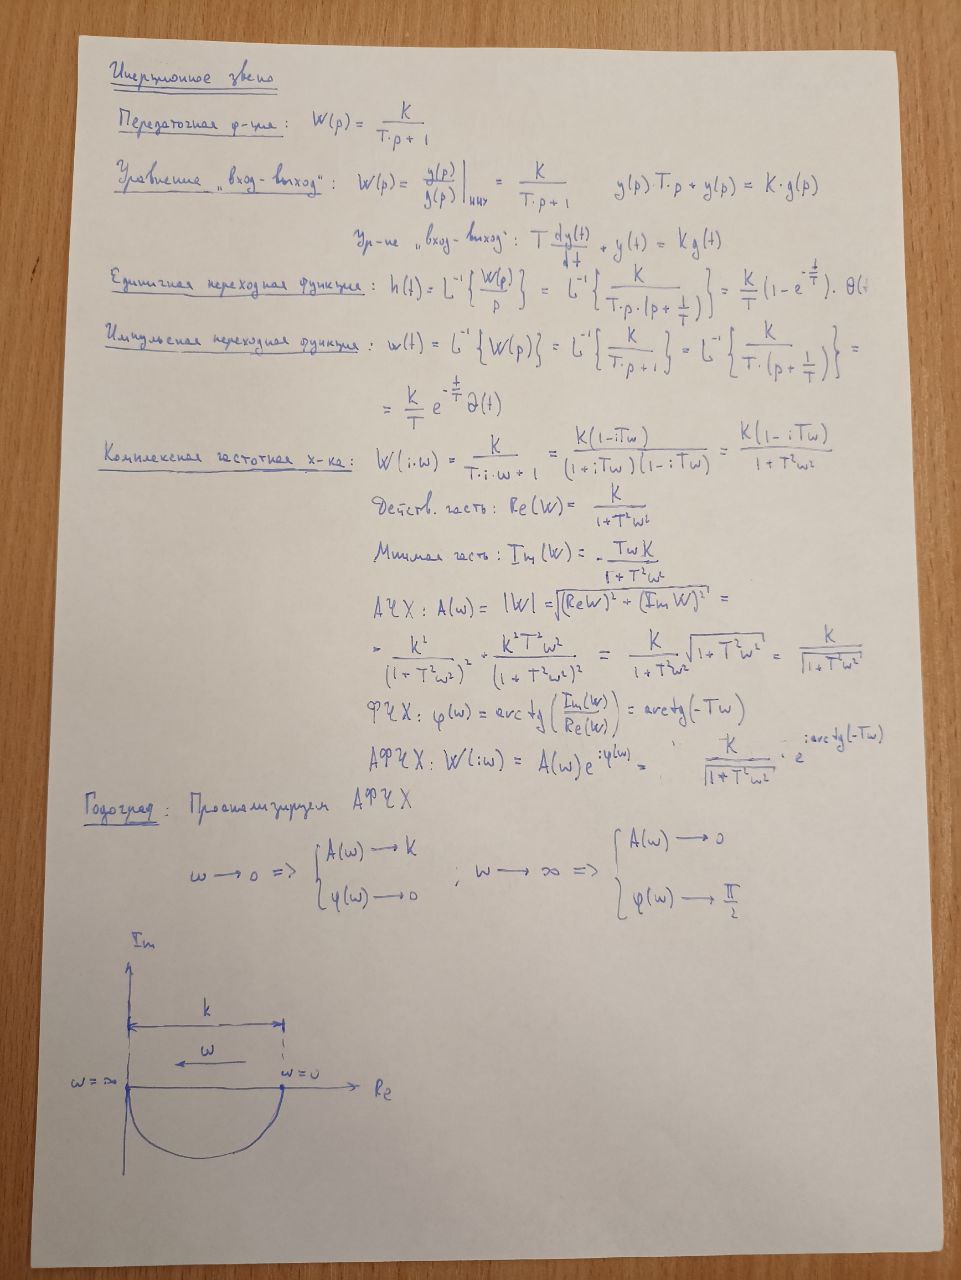 Инерционное звено
Передаточная ф-ция: W(p) = K / (T·p + 1)
Уравнение „вход-выход": W(p) = y(p)/g(p) |нну = K / (T·p + 1)   y(p)·T·p + y(p) = K·g(p)
Ур-ие „вход-выход": T dy(t)/dt + y(t) = Kg(t)
Единичная переходная функция: h(t) = L⁻¹{W(p)/p} = L⁻¹{K / (T·p·(p + 1/T))} = K/T (1 - e^(-t/T)). θ(t
Импульсная переходная функция: w(t) = L⁻¹{W(p)} = L⁻¹{K / (T·p + 1)} = L⁻¹{K / (T·(p + 1/T))} =
= K/T e^(-t/T) ∂(t)
Комплексная частотная х-ка: W(i·w) = K / (T·i·w + 1) = K(1-iTw) / ((1+iTw)(1-iTw)) = K(1-iTw) / (1+T²w²)
Действ. часть: Re(W) = K / (1+T²w²)
Мнимая часть: Im(W) = - TwK / (1+T²w²)
АЧХ: A(w) = |W| = √((ReW)² + (ImW)²) =
= K² / (1+T²w²)² + K²T²w² / (1+T²w²)² = K / (1+T²w²) √(1+T²w²) = K / √(1+T²w²)
ФЧХ: φ(w) = arctg(Im(W)/Re(W)) = arctg(-Tw)
АФЧХ: W(iw) = A(w)e^(iφ(w)) = K / √(1+T²w²) · e^(iarctg(-Tw))
Годограф: Проанализируем АФЧХ
w → 0 => { A(w) → K   φ(w) → 0 ; w → ∞ => { A(w) → 0   φ(w) → π/2
Im
k
w
w = ∞   w = 0   Re